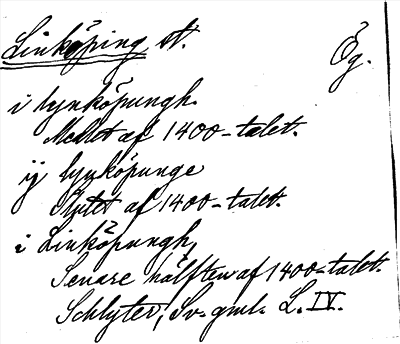 Linköping st. Ög.
i lynköpungh.
Medlet af 1400-talet.
ij lynköpunge
Slutet af 1400-talet.
i Linköpungh,
Senare hälften af 1400-talet.
Schlyter, Sv. gml. L. IV.